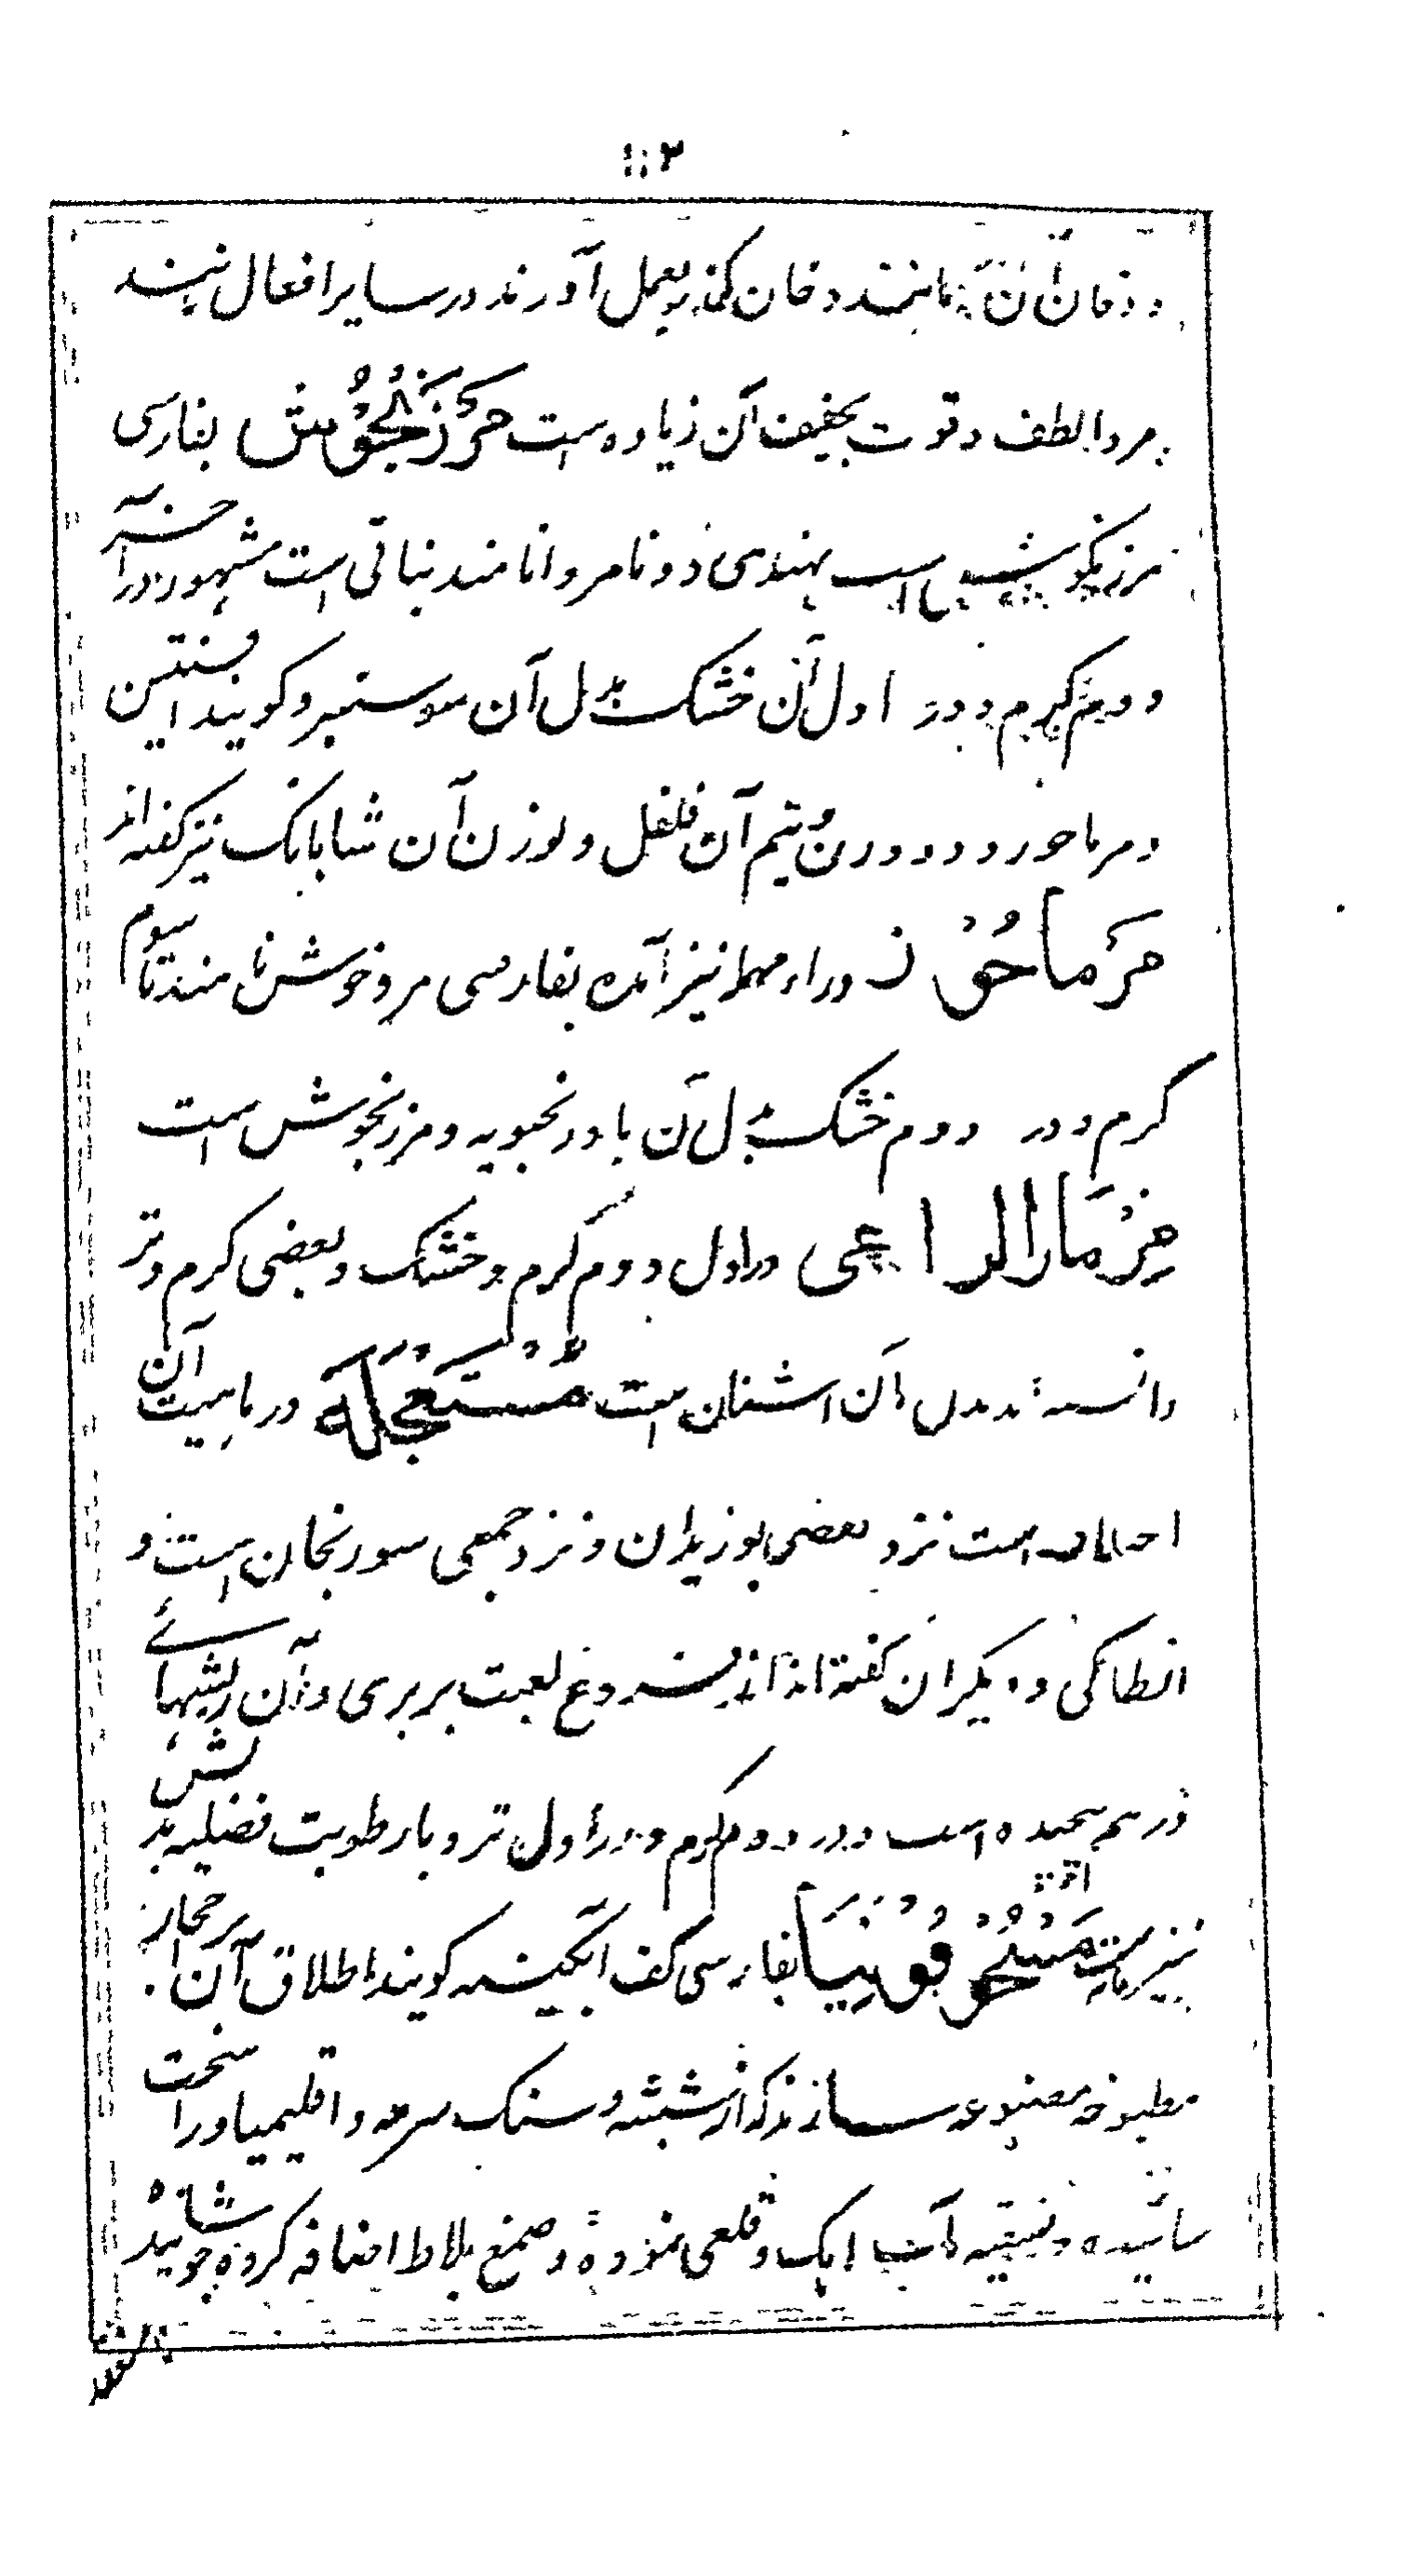 و دخان آن مانند دخان کندر بعمل آورند و در سایر افعال نیند
مر و الطف و قوت تجفیف آن زیاده است مَرزَنجُوش بفارسی
مرزنکوش است بهندی دونا مروا نامند نباتی است مشهور در آخر
دویم گرم و در اول آن خشک بدل آن سوسنبر و گویند افسنتین
و مرماحور و دو وزن نیم آن فلفل و بوزن آن شابابک نیز گفته اند
مَرماحُوز و راء مهمله نیز آمده بفارسی مروخوش نامند تا سوم
گرم و در دوم خشک بدل آن بادرنجبویه و مرزنجوش است
مِزمارالراعی در اول دوم گرم و خشک و بعضی گرم و تر
دانسته‌اند بدل آن اشنان است مُستَعجَلَه در ماهیت آن
اختلاف است نزد بعضی بوزیدان و نزد جمعی سورنجان است و
انطاکی و دیگران گفته اند از فروع لعبت بربری و آن ریشهائے
در هم پیچیده است و در دوم گرم و در اول تر و با رطوبت فضلیه بدلش
نیز مَسحُوقُونِیَا بفارسی کف آبگینه گویند اطلاق آن بر حجاره
مطبوخه مصنوعه سازند که از شیشه و سنگ سرمه و اقلیمیا و را سخت
سائیده و قلعی نموده و صمغ بلاط اضافه کرده جوشانیده